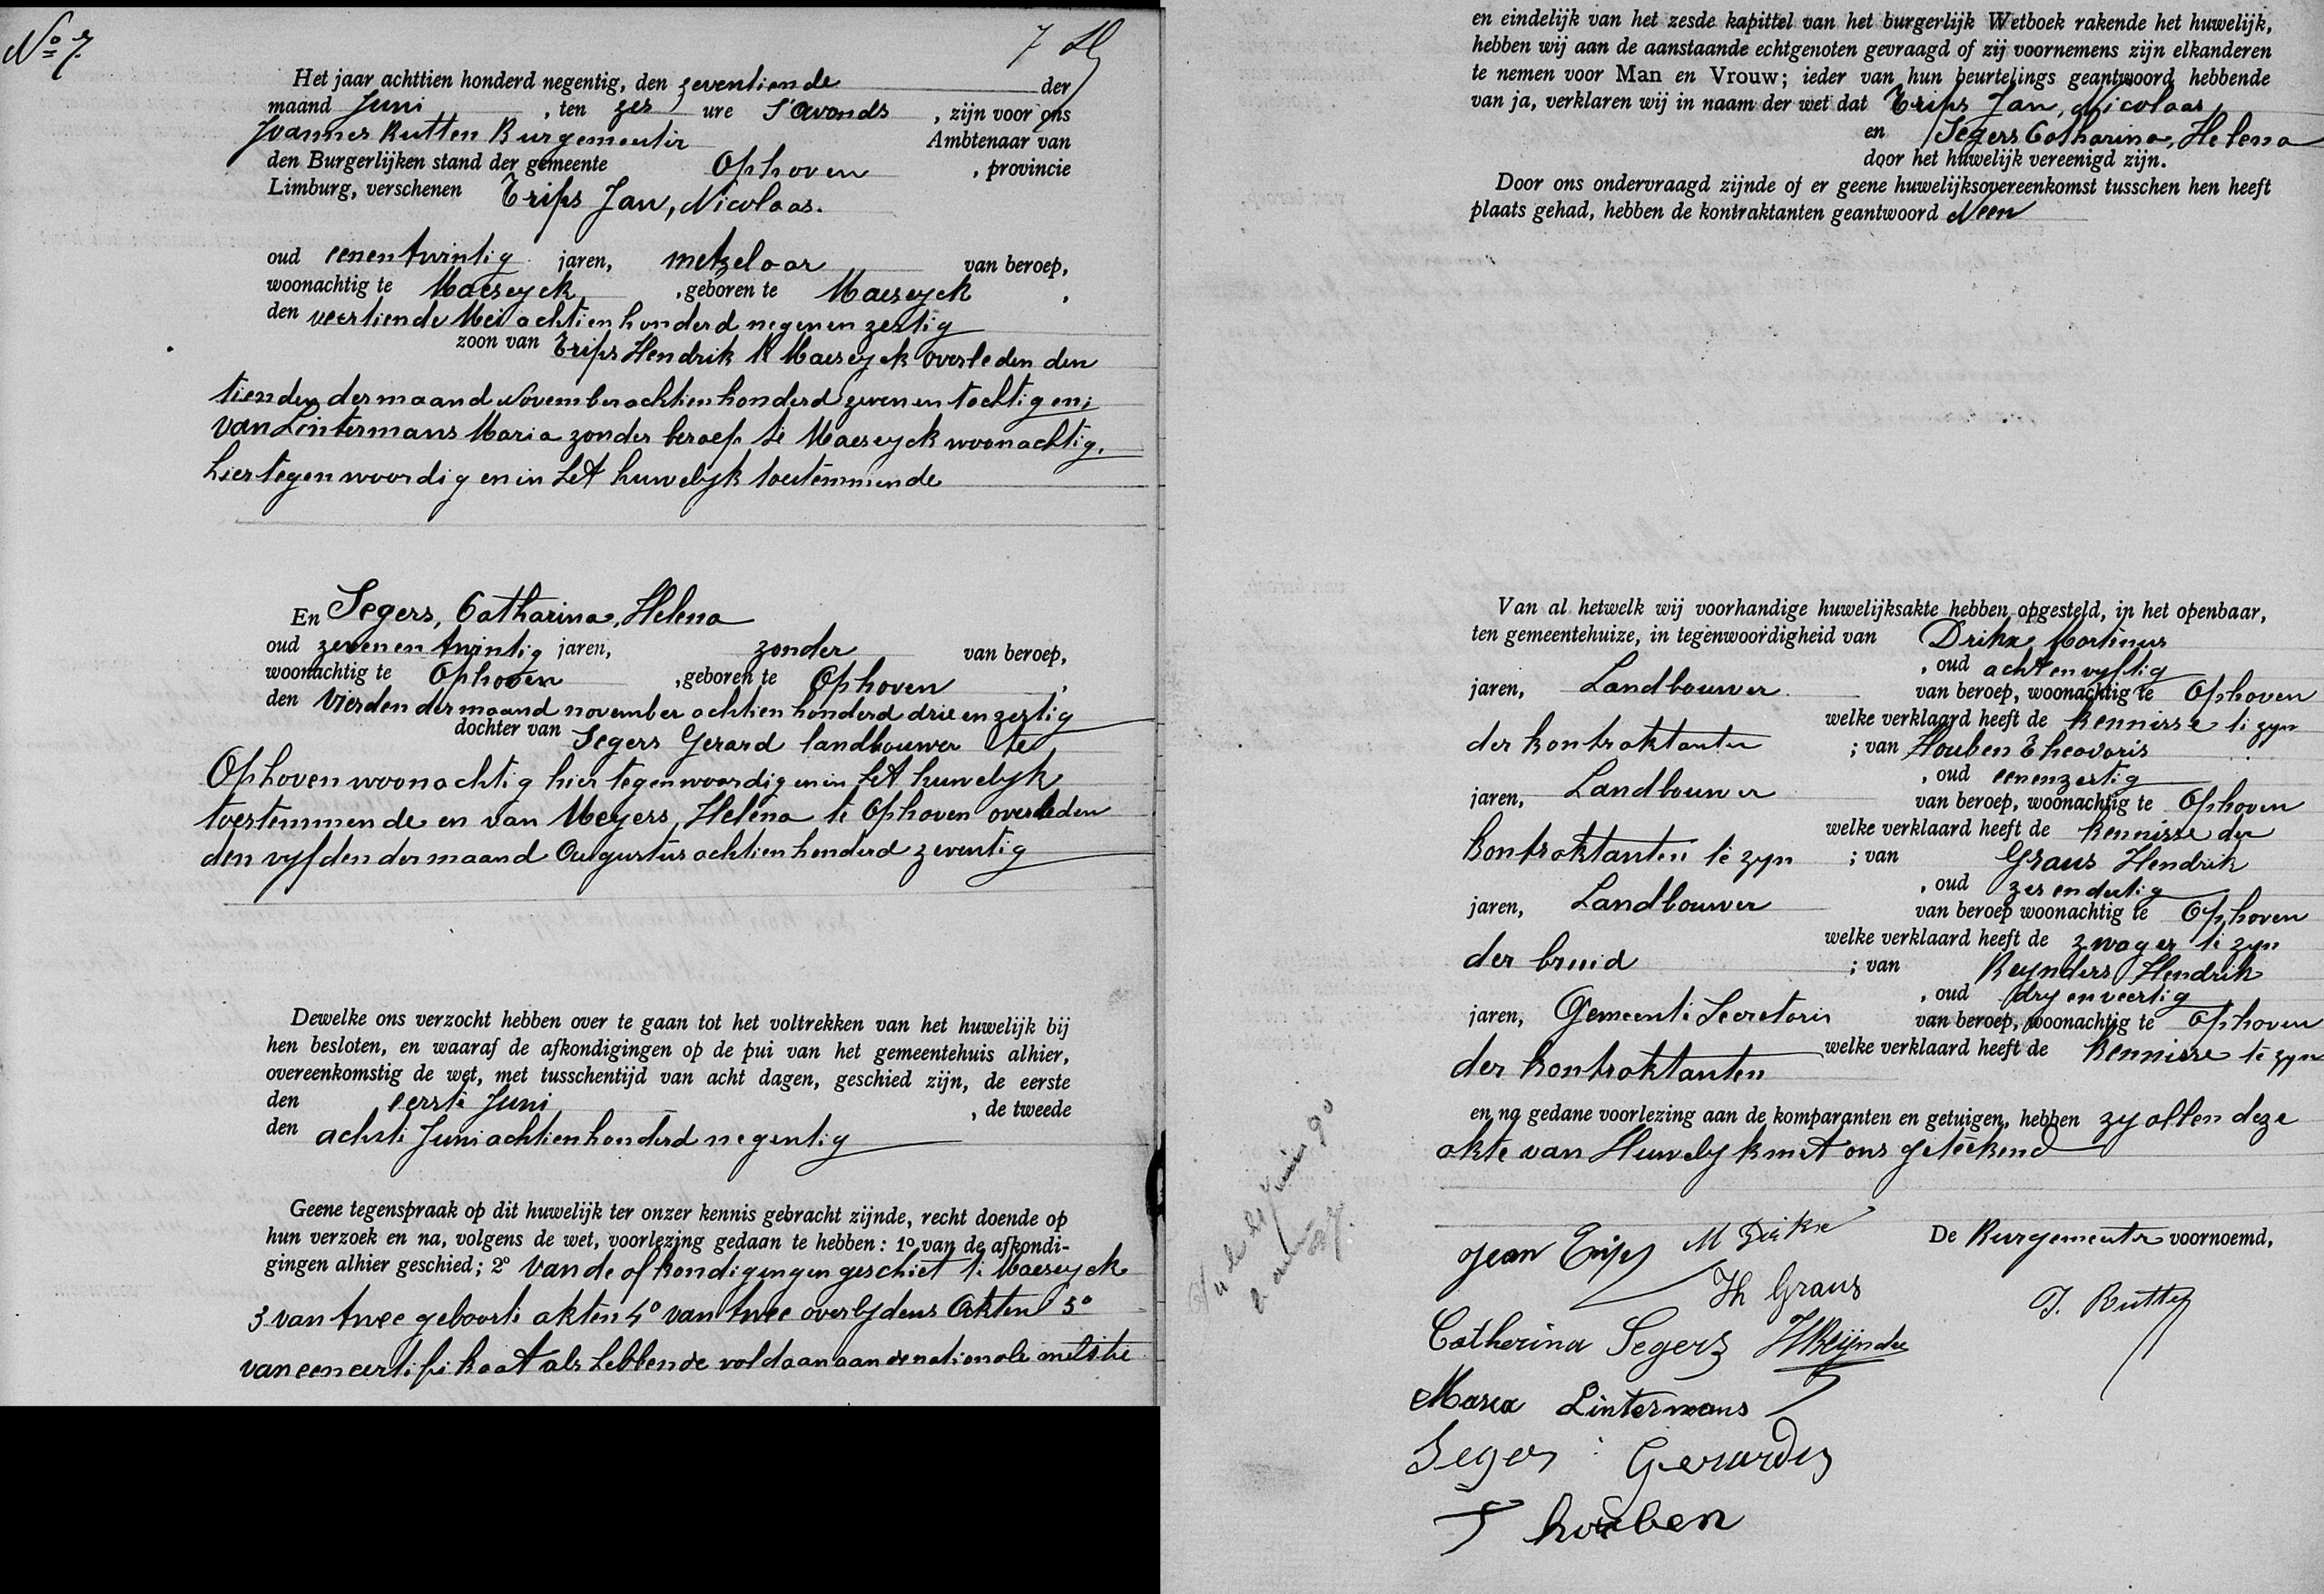 Nº 7.
7
Het jaar achttien honderd negentig, den zeventiende der
maand Juni , ten zes ure S'avonds , zijn voor ons
Joannes Rutten Burgemeester Ambtenaar van
den Burgerlijken stand der gemeente Ophoven , provincie
Limburg, verschenen Trips Jan, Nicolaas.
oud eenentwintig jaren, metzelaar van beroep,
woonachtig te Maeseyck , geboren te Maeseyck ,
den veertiende Mei achtien honderd negenen zestig
zoon van Trips Hendrik te Maeseyck overleden den
tienden der maand November achtien honderd zevenen tachtig en;
van Lintermans Maria zonder beroep te Maeseyck woonachtig.
hier tegenwoordig en in het huwelyk toestemmende
En Segers, Catharina, Helena
oud zevenen twintig jaren, zonder van beroep,
woonachtig te Ophoven , geboren te Ophoven ,
den vierden der maand november achtien honderd drie en zestig
dochter van Segers Gerard landbouwer te
Ophoven woonachtig hier tegenwoordig en in het huwelyk
toestemmende en van Meyers, Helena te Ophoven overleden
den vyfden der maand Augustus achtien honderd zeventig
Dewelke ons verzocht hebben over te gaan tot het voltrekken van het huwelijk bij
hen besloten, en waaraf de afkondigingen op de pui van het gemeentehuis alhier,
overeenkomstig de wet, met tusschentijd van acht dagen, geschied zijn, de eerste
den eerste Juni , de tweede
den achste Juni achtien honderd negentig
Geene tegenspraak op dit huwelijk ter onzer kennis gebracht zijnde, recht doende op
hun verzoek en na, volgens de wet, voorlezing gedaan te hebben : 1º van de afkondi-
gingen alhier geschied; 2º van de afkondigingen geschiet te Maeseyck
3 van twee geboorte akten 4º van twee overlydens Akten 5º
van een certifikaat als hebbende voldaan aan de nationale militie
en eindelijk van het zesde kapittel van het burgerlijk Wetboek rakende het huwelijk,
hebben wij aan de aanstaande echtgenoten gevraagd of zij voornemens zijn elkanderen
te nemen voor Man en Vrouw; ieder van hun beurtelings geantwoord hebbende
van ja, verklaren wij in naam der wet dat Trips Jan, Nicolaas
en Segers Catharina, Helena
door het huwelijk vereenigd zijn.
Door ons ondervraagd zijnde of er geene huwelijksovereenkomst tusschen hen heeft
plaats gehad, hebben de kontraktanten geantwoord Neen
Van al hetwelk wij voorhandige huwelijksakte hebben opgesteld, in het openbaar,
ten gemeentehuize, in tegenwoordigheid van Drikx Martinus
, oud acht en vyftig
jaren, Landbouwer van beroep, woonachtig te Ophoven
welke verklaard heeft de kennisse te zyn
der kontraktanten ; van Houben Theovoris
, oud eenenzestig
jaren, Landbouwer van beroep, woonachtig te Ophoven
welke verklaard heeft de kennisse der
kontraktanten te zyn ; van Graus Hendrik
, oud zes en dertig
jaren, Landbouwer van beroep woonachtig te Ophoven
welke verklaard heeft de zwager te zyn
der bruid ; van Reynders Hendrik
, oud dry en veertig
jaren, Gemeente Secretaris van beroep, woonachtig te Ophoven
welke verklaard heeft de kennisse te zyn
der kontraktanten
en na gedane voorlezing aan de komparanten en getuigen, hebben zy allen deze
akte van Huwelyk met ons geteekend
Jean Trips M Drikx De Burgemeester voornoemd,
Th Graus J. Rutten
Catherina Segers HReÿnders
Maria Lintermans
Segers Gerardus
T houben